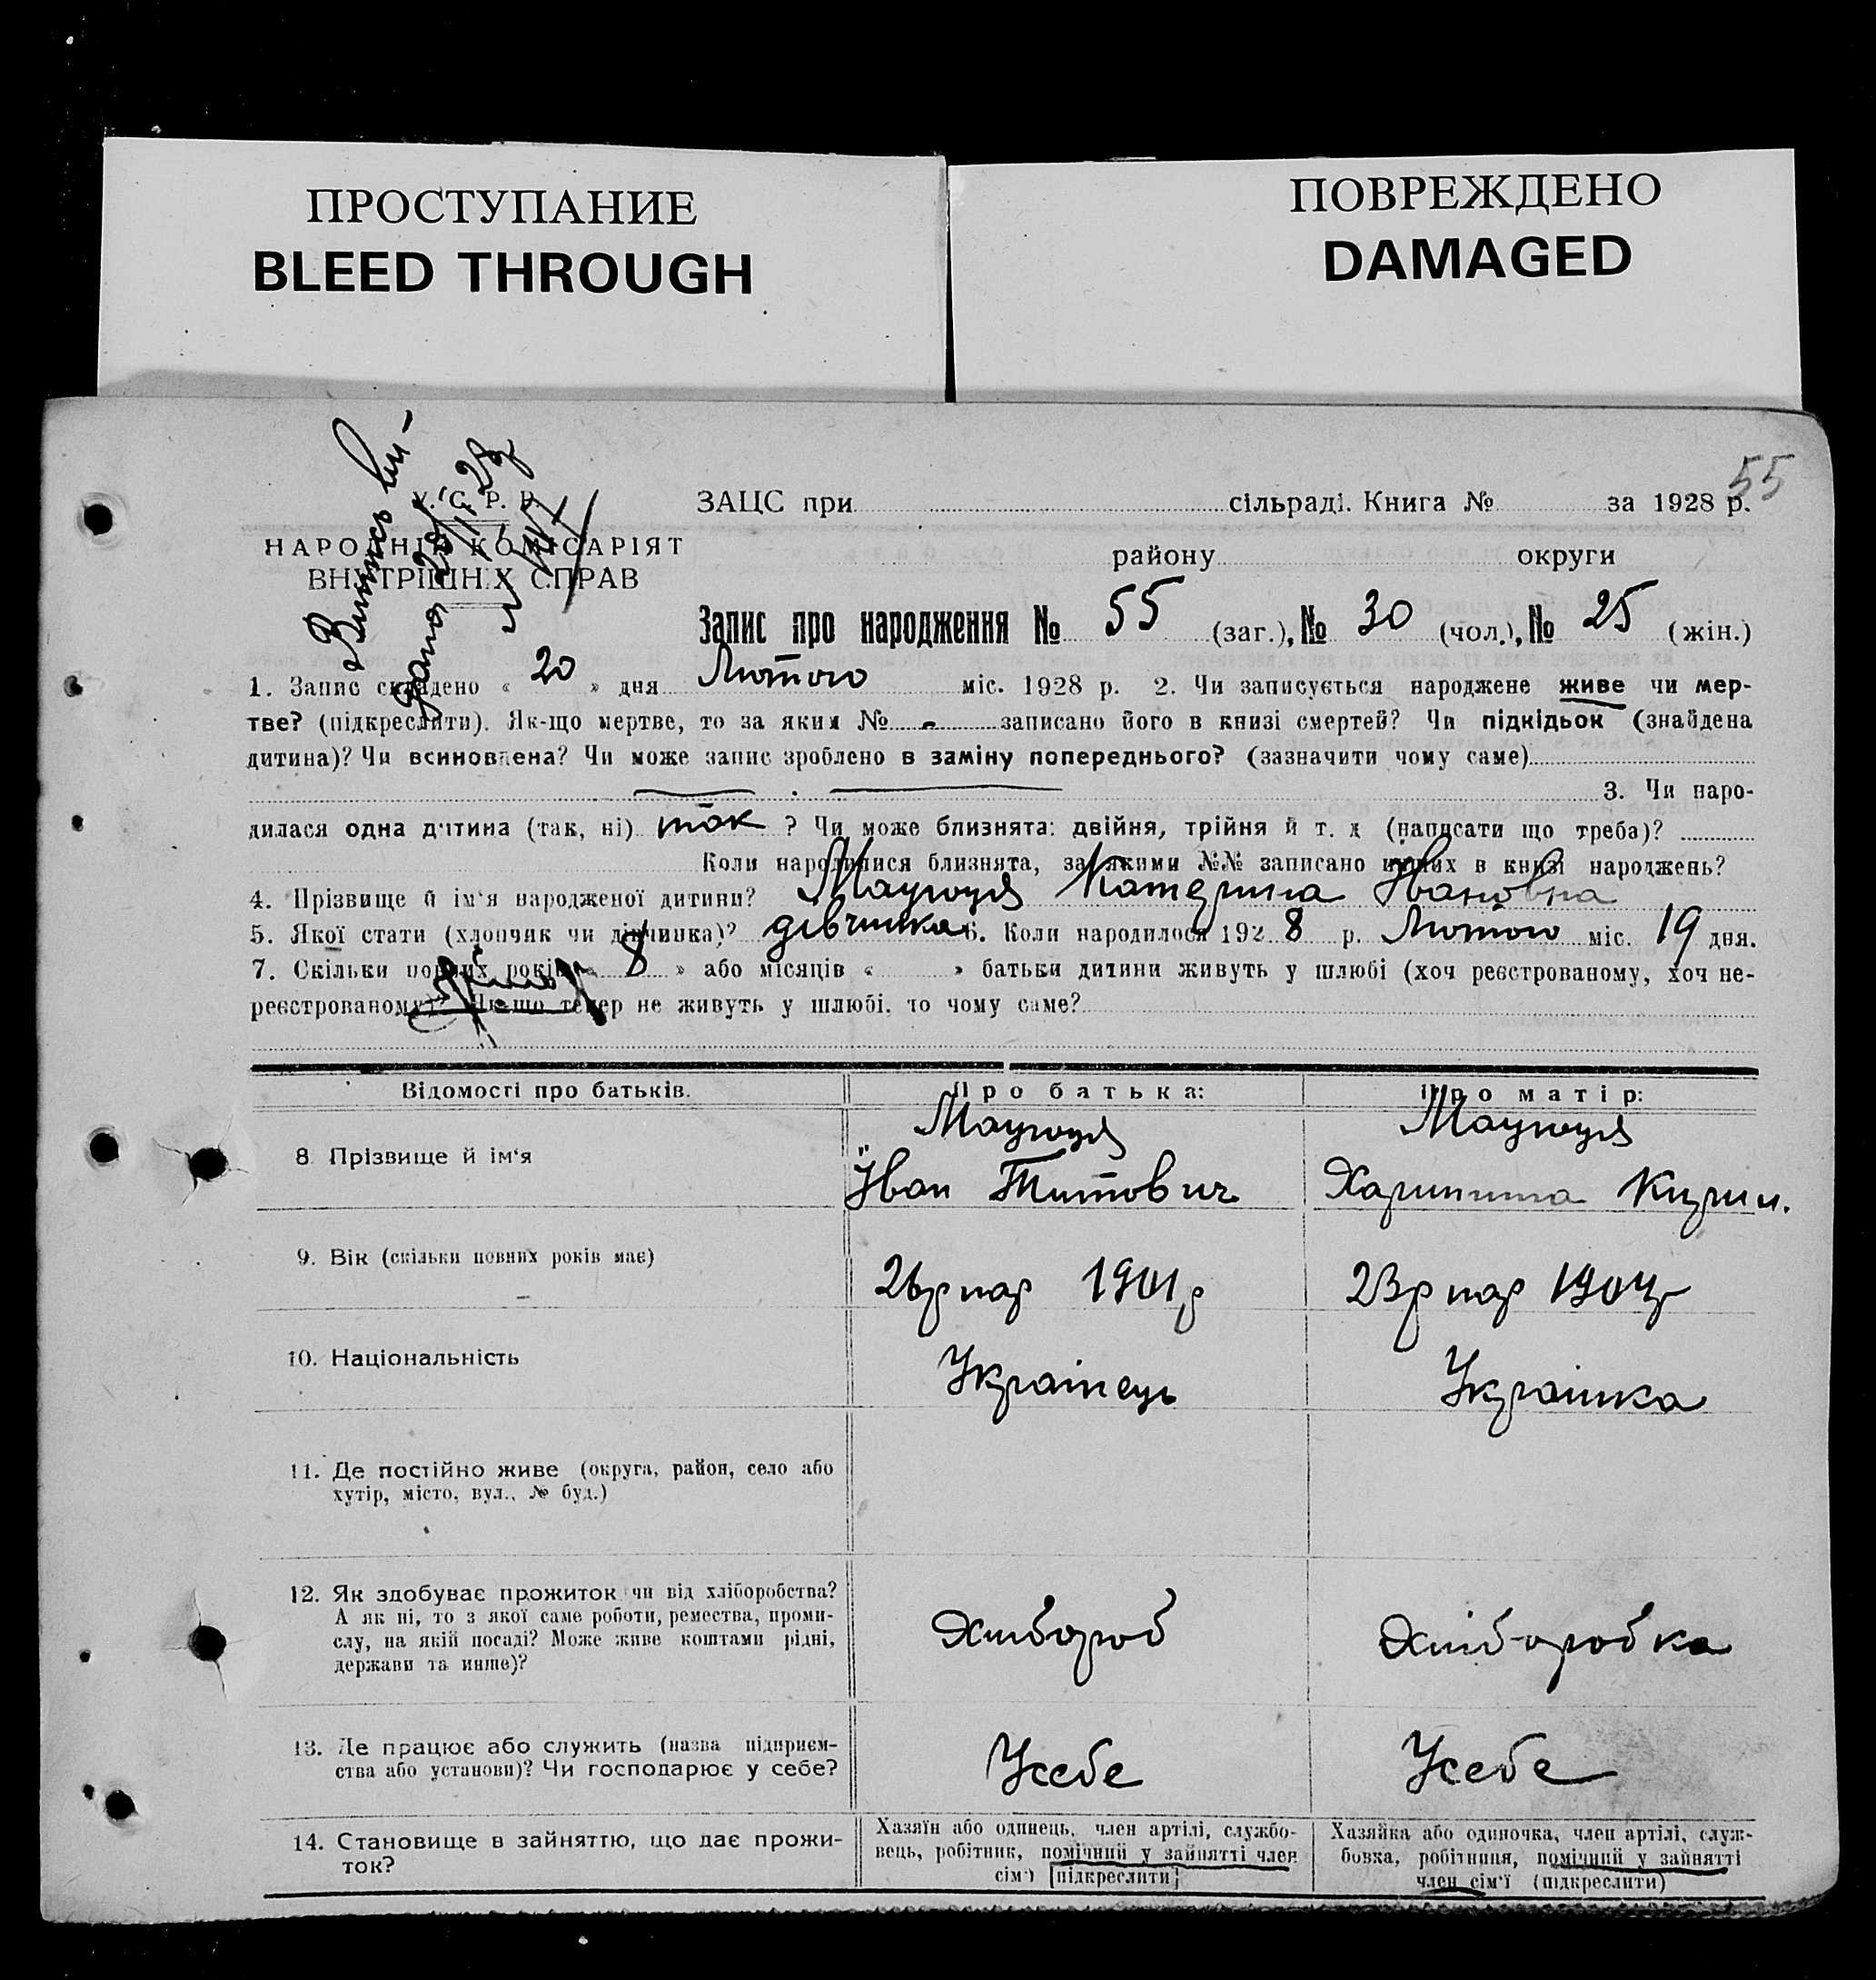 ПРОСТУПАНИЕ
BLEED THROUGH
ПОВРЕЖДЕНО
DAMAGED
55
Випись ви-
дано 28/II 28 р
У. С. Р. Р.
НАРОДНІЙ КОМІСАРІЯТ
ВНУТРІШНІХ СПРАВ
ЗАЦС при сільраді. Книга № за 1928 р.
району округи
Запис про народження № 55 (заг.), № 30 (чол.), № 25 (жін.)
1. Запис складено « 20 » дня Лютого міс. 1928 р. 2. Чи записується народжене живе чи мер-
тве? (підкреслити). Як-що мертве, то за яким № - записано його в книзі смертей? Чи підкідьок (знайдена
дитина)? Чи всиновлена? Чи може запис зроблено в заміну попереднього? (зазначити чому саме)
3. Чи наро-
дилася одна дитина (так, ні) так ? Чи може близнята: двійня, трійня й т. д (написати що треба)?
Коли народилися близнята, за якими №№ записано инших в книзі народжень?
4. Прізвище й ім'я народженої дитини? Катерина Івановна
5. Якої стати (хлопчик чи дівчинка)? дівчинка 6. Коли народилося 1928 р. Лютого міс. 19 дня.
7. Скільки повних років « 8 » або місяців « » батьки дитини живуть у шлюбі (хоч реєстрованому, хоч не-
реєстрованому)? Як-що тепер не живуть у шлюбі, то чому саме?
Відомості про батьків. Про батька: Про матір:
8. Прізвище й ім'я
Іван Титович
Харитина Кирил.
9. Вік (скільки повних років має)
26 р нар 1901 р
23 р нар 1904 р
10. Національність
Українець
Українка
11. Де постійно живе (округа, район, село або
хутір, місто, вул., № буд.)
12. Як здобуває прожиток чи від хліборобства?
А як ні, то з якої саме роботи, ремества, проми-
слу, на якій посаді? Може живе коштами рідні,
держави та инше)?
Хлібороб
Хліборобка
13. Де працює або служить (назва підприєм-
ства або установи)? Чи господарює у себе?
Усебе
Усебе
14. Становище в зайняттю, що дає прожи-
ток?
Хазяїн або одинець, член артілі, службо-
вець, робітник, помічний у зайнятті член
сім'ї [підкреслити]
Хазяйка або одиночка, член артілі, служ-
бовка, робітниця, помічний у зайнятті
член сім'ї (підкреслити)